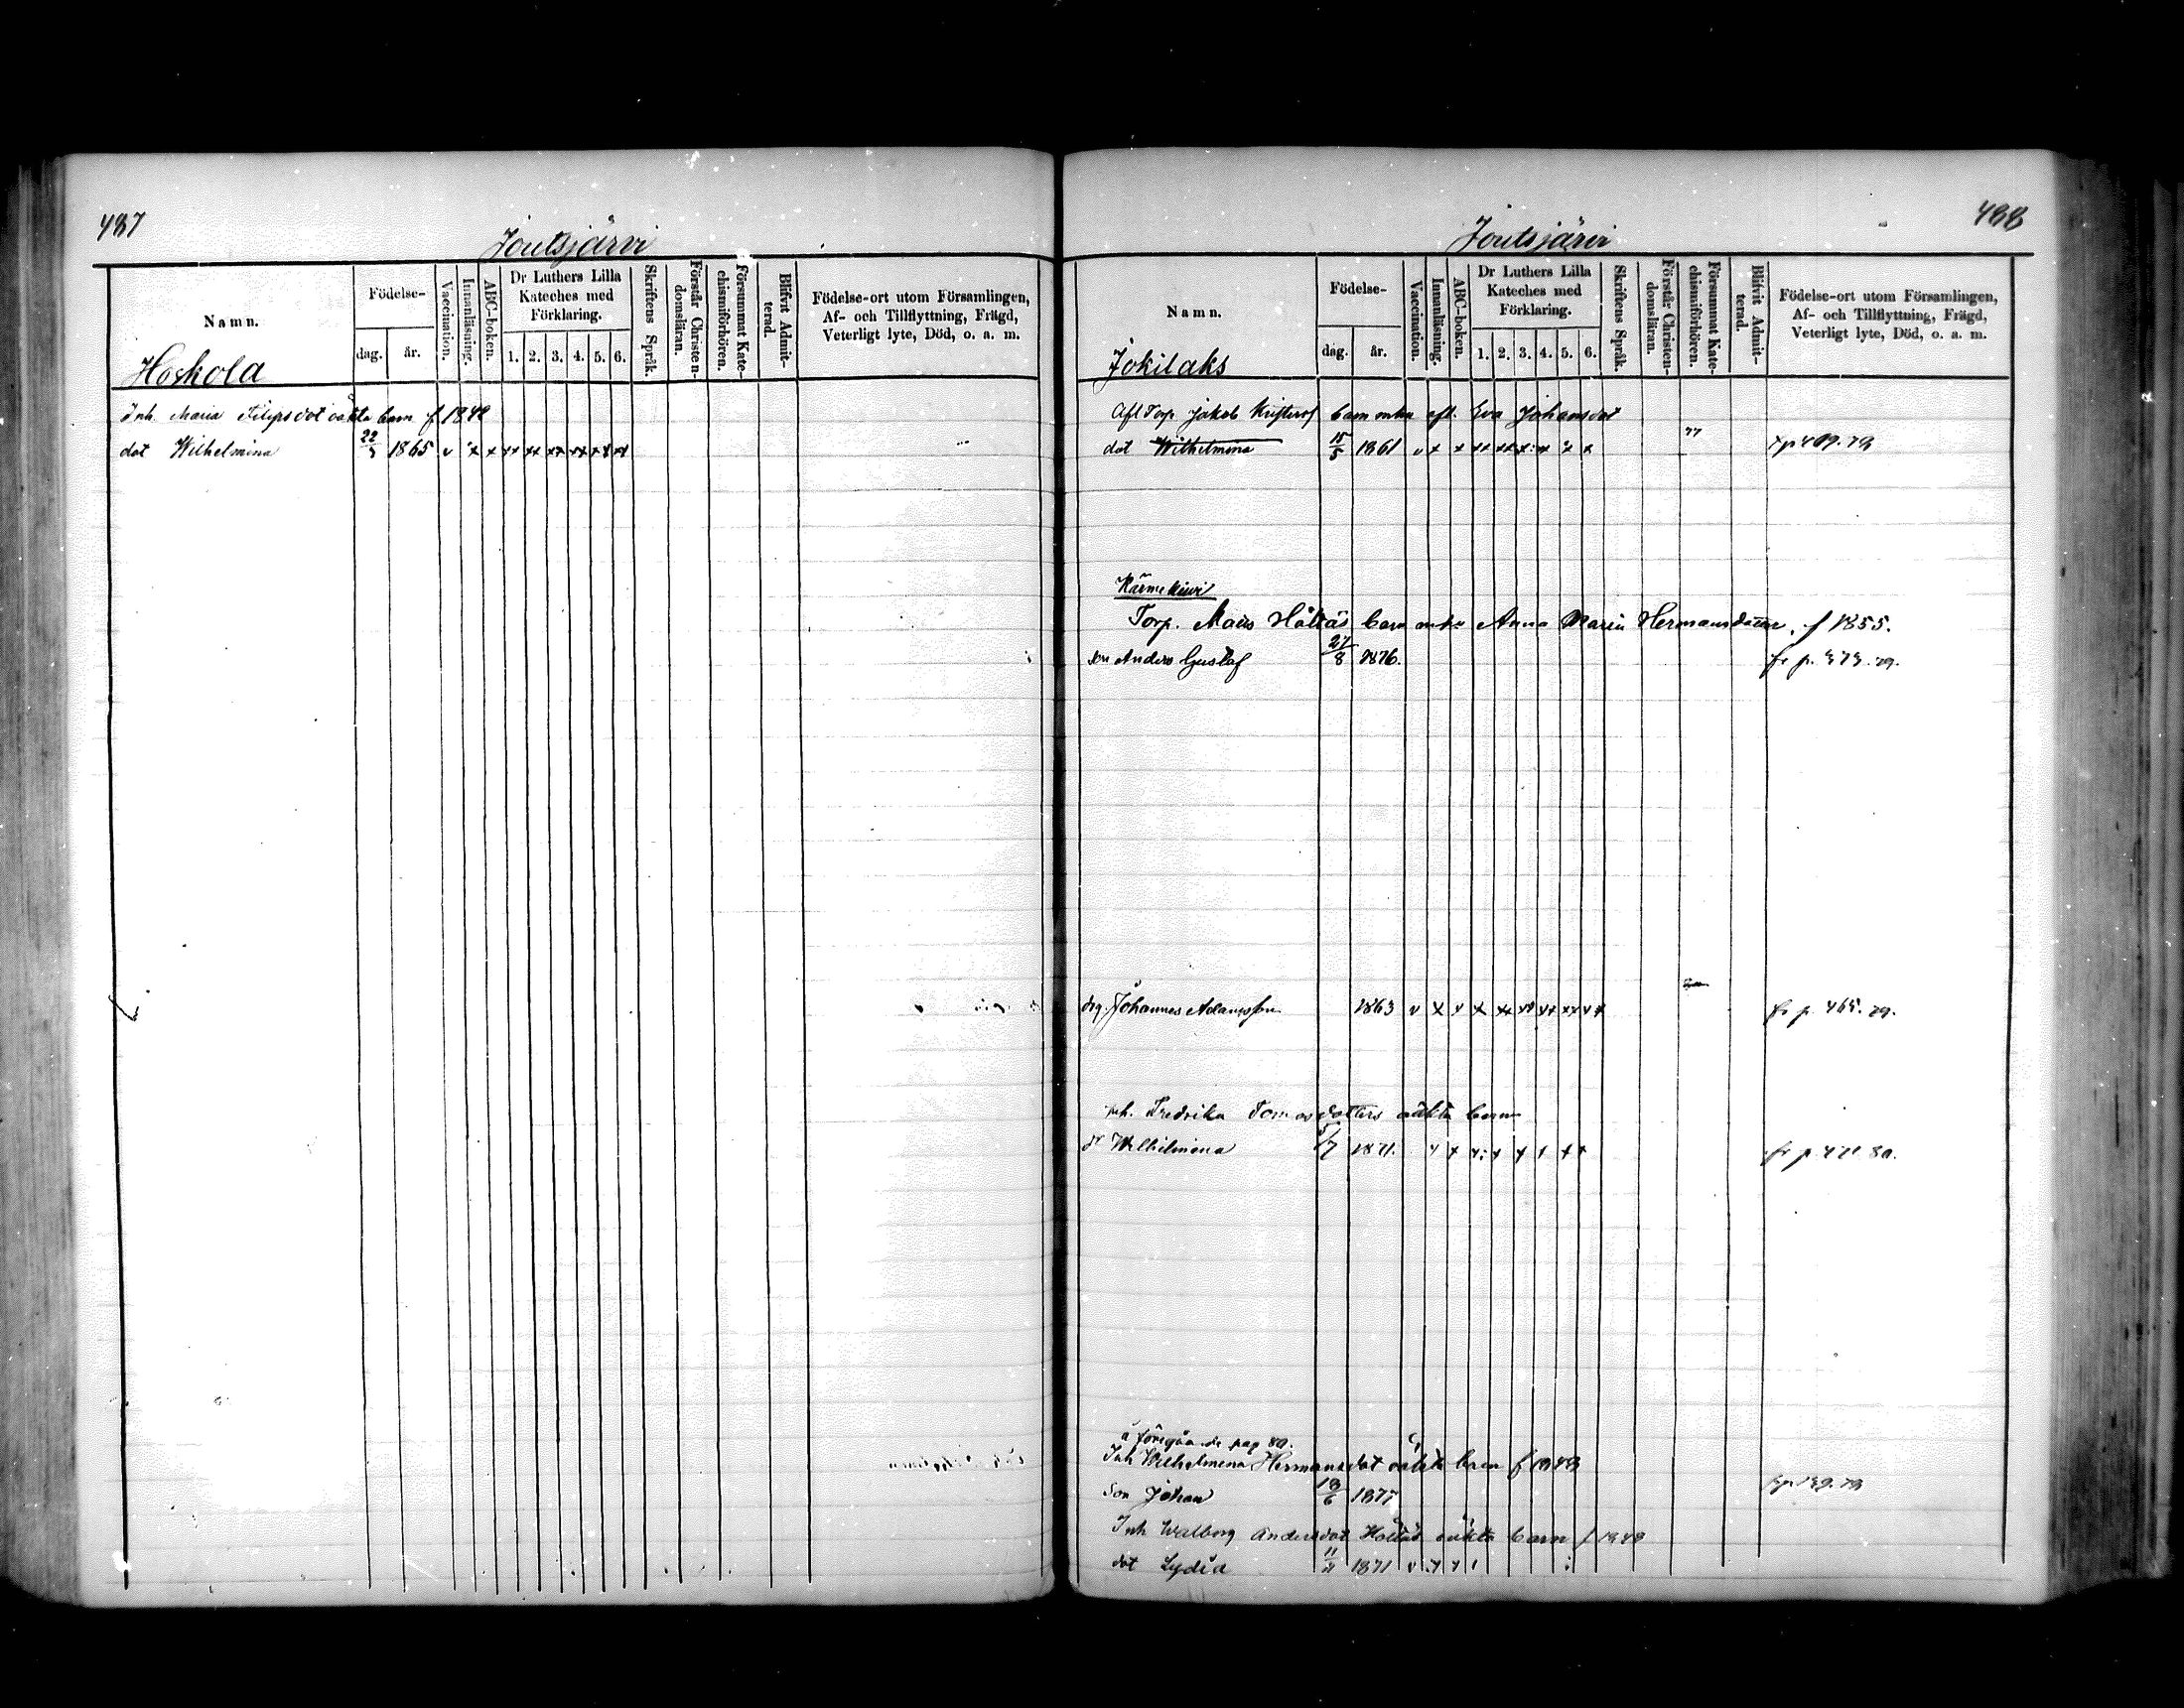 487
Joutsjärvi
Namn.
Födelse-
dag.
år.
Vaccination.
Innanläsning.
ABC-boken.
Dr Luthers Lilla
Kateches med
Förklaring.
1. 2. 3. 4. 5. 6.
Skriftens Språk.
Förstår Christen-
domsläran.
Försummat Kate-
chismiförhören.
Blifvit Admit-
terad.
Födelse-ort utom Församlingen,
Af- och Tillflyttning, Frägd,
Veterligt lyte, Död, o. a. m.
Hoskola
Inh. Maria Filipsdot oäkta barn f 1842
dot Wilhelmina 22/3 1865 v x x xx xx xx xx xx xx
488
Joutsjärvi
Namn.
Födelse-
dag.
år.
Vaccination.
Innanläsning.
ABC-boken.
Dr Luthers Lilla
Kateches med
Förklaring.
1. 2. 3. 4. 5. 6.
Skriftens Språk.
Förstår Christen-
domsläran.
Försummat Kate-
chismiförhören.
Blifvit Admit-
terad.
Födelse-ort utom Församlingen,
Af- och Tillflyttning, Frägd,
Veterligt lyte, Död, o. a. m.
Jokilaks
Afl Torp Jakob barn Eva Johansdot
dot Wilhelmina 15/5 1861 v x x xx xx x x x 77
Torp. Hältäs barn Anna Maria Hermansdotter f 1855.
son Anders Gustaf 27/8 1876. fr p. 79.
drg. Johannes Adamsson 1863 v x x x xx xx xx xx xx fr p 465. 79.
inh. Fredrika Tomasdotters oäkta barn
dr Wilhelmina 5/7 1871. x x x x x x x fr p 471 80.
å föregående pag 80.
Inh Wilhelmina Hermansdot oäkta barn f 1848
Son Johan 18/6 1877
Inh Walborg Andersdot Hältäs oäkta barn f 1848
dot Lydia 1871 v x x